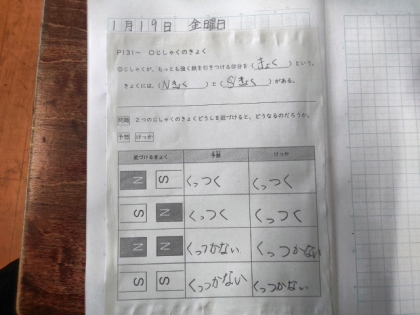 1月19日 金曜日
P131～ ○じしゃくのきょく
◎じしゃくが、もっとも強く鉄を引きつける部分を(きょく)という。
きょくには、(Nきょく)と(Sきょく)がある。
問題 2つのじしゃくのきょくどうしを近づけると、どうなるのだろうか。
予想 けっか
近づけるきょく 予想 けっか
N S くっつく くっつく
S N くっつく くっつく
N N くっつかない くっつかない
S S くっつかない くっつかない